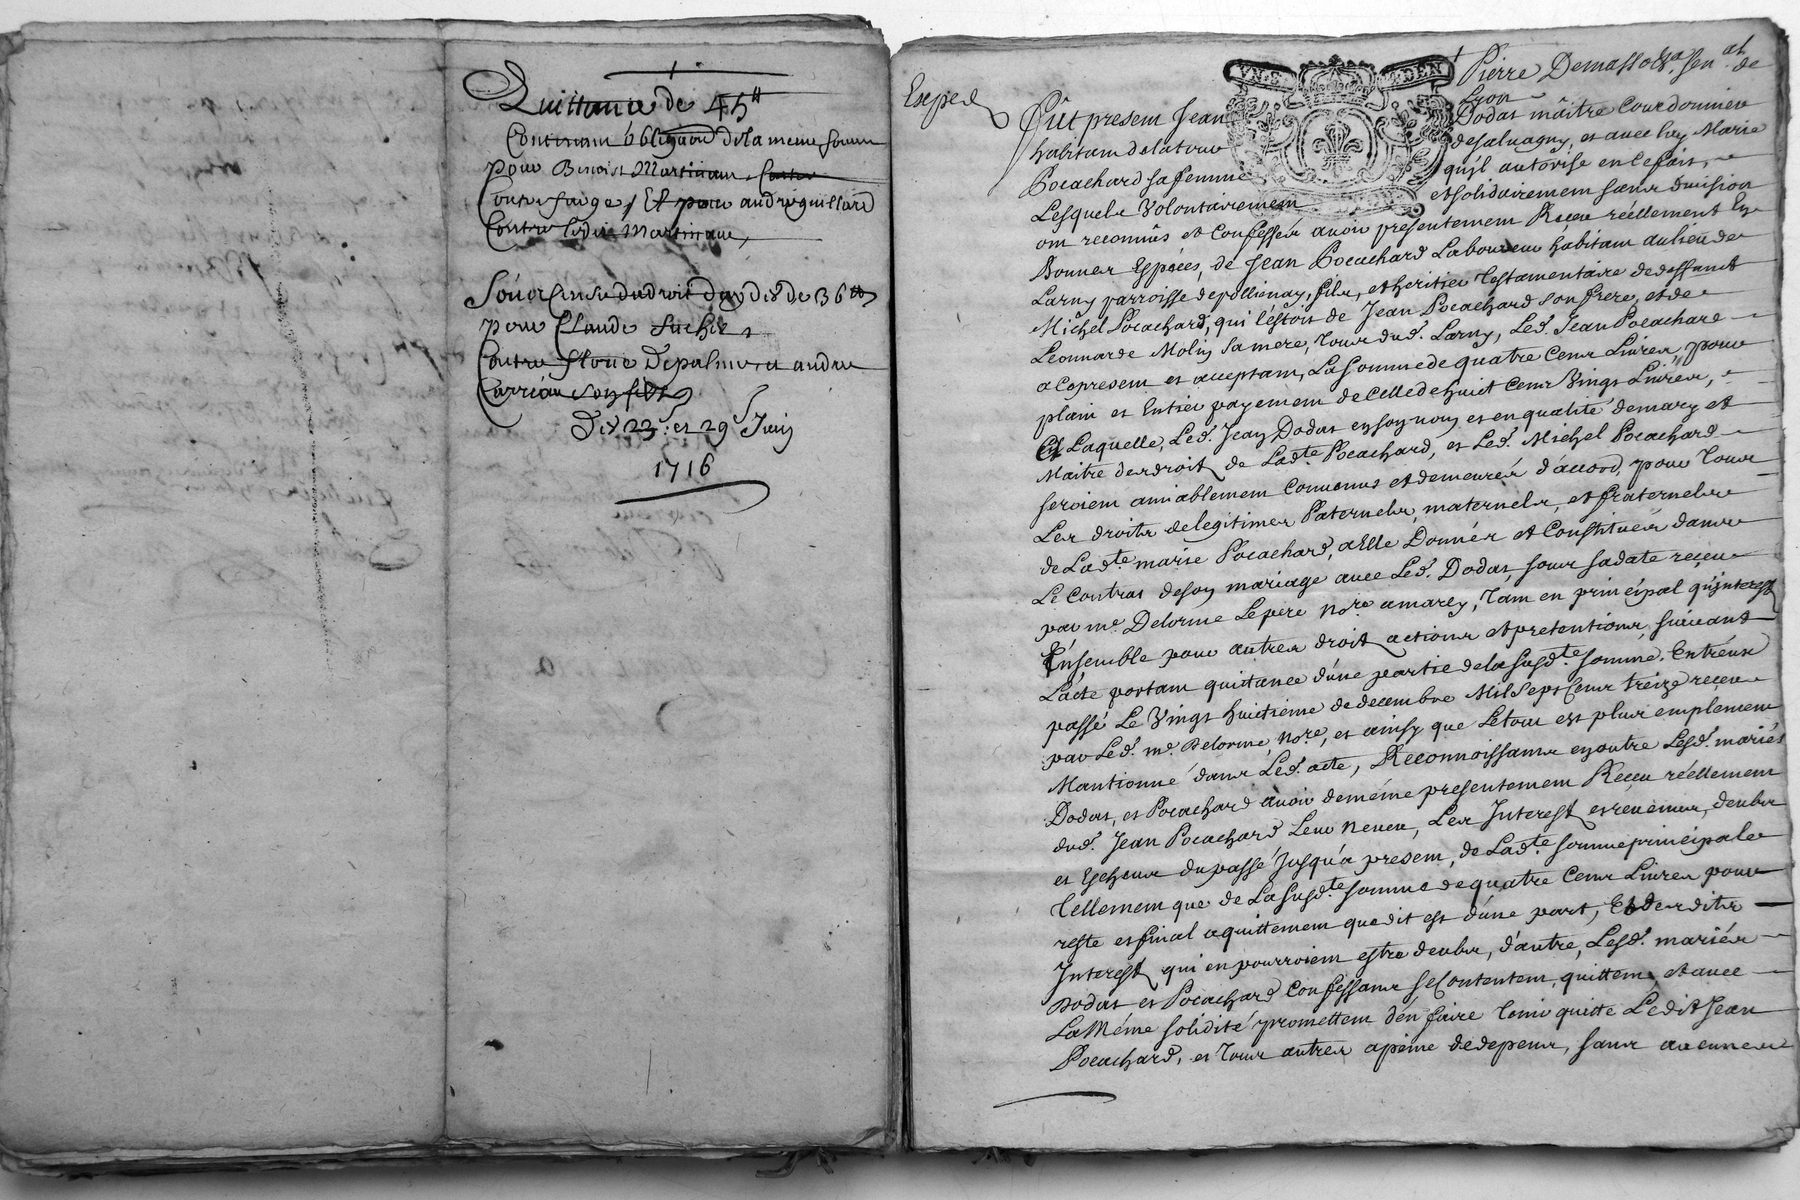 Quittance de 45tt
Contenant obligaon de la meme somme
pour Benoist Martinant
Contre farge, Et pour andré guillard
Contre Martinant,
Souscense du droit de 36tt
pour Claude Suchet
Contre depalme et andre
Carrian son fils
Des 23e. et 29e Juin
1716
Expedie
VN.S DEN
Pierre Demasso Esr. Senal. de
Lyon
Fût present Jean Dodat maître Cour donnier
habitant de la tour de Saluagny, et avec luy Marie
Pocachard sa femme qu'il authorise en Ce fait,
Lesquels Volontairement et solidairement sans division
ont reconnûs et Confessés avoir presentement Receu réellement En
Bonnes Espèces, de Jean Pocachard Laboureur habitant au lieu de
Larny parroisse de pollionay, fils, et heritier Testamentaire de deffunct
Michel Pocachard, qui l'éstoit de Jean Pocachard son frere, et de
Leonnarde Molin sa mere, tous dud. Larny, Led. Jean Pocachard
a Ce present et acceptant, La somme de quatre Cens Livres, pour
plain et Entier payement de Celle de huict Cens Vingt Livres,
a Laquelle, Led. Jean Dodat en son nom et en qualité de mary et
Maitre des droits de Ladte. Pocachard, et Led. Michel Pocachard
seroient amiablement Convenus et demeurés d'accord, pour tous
Les droits de legitimes Paternels, maternels, et fraternels
de Ladte. marie Pocachard, a Elle Donnés et Constitués dans
Le Contrat de son mariage avec Led. Dodat sous sa date receu
par me. Delorme Le pere nore. a marcy, tant en principal qu'interest
Ensemble pour autres droits actions et pretentions, suivant
Lacte portant quittance d'une partie de la susdte. somme. Entreux
passé Le Vingt huictieme de decembre Mil sept Cens treize receu
par Led. me. Delorme, Nore., et ainsy que Le tout est plus emplement
Mantionné dans Led. acte, Reconnoissans en outre Lesd. mariés
Dodat, et Pocachard avoir de même presentement Receu réellement
dud. Jean Pocachard Leur neveu, Les Interests et revenus, deubs
et Escheus du passé Jusqu'a present, de Ladte. somme principale
tellement que de La susdte. somme de quatre Cens Livres pour
reste et final aquittement que dit est d'une part, Et des dits
Interests qui en pourroient estre deubs, d'autre, Lesd. mariés
Dodat et Pocachard Confessans se Contentent, quittent et avec
La Même solidité promettent d'en faire tenir quitte Ledit Jean
Pocachard, et tous autres a peine de depens, sans aucune